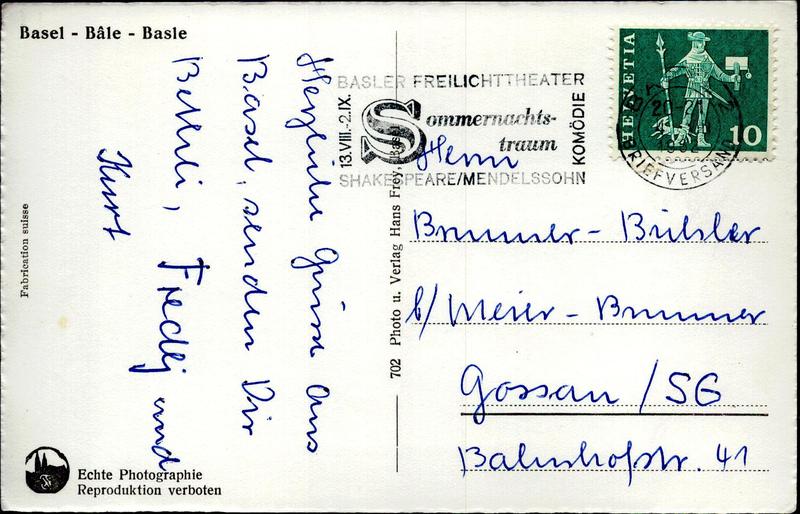 Basel - Bâle - Basle
Herzliche Grüsse aus
Basel, senden Dir
Bethli, Fredij und
Kurt
Fabrication suisse
Echte Photographie
Reproduktion verboten
702 Photo u. Verlag Hans Frey, Bas
BASLER FREILICHTTHEATER
13.VIII.-2.IX.
Sommernachts-
traum
KOMÖDIE
SHAKESPEARE/MENDELSSOHN
HELVETIA
10
20-21
BRIEFVERSAND
Herrn
Brunner-Bühler
b/Meier-Brunner
Gossau/SG
Bahnhofstr. 41